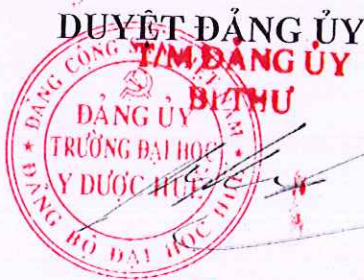 DUYỆT ĐẢNG ỦY
T/M ĐẢNG ỦY
BÍ THƯ
ĐẢNG CỘNG NAM
ĐẢNG ỦY
TRƯỜNG ĐẠI HỌC
Y DƯỢC HUẾ
ĐẢNG BỘ ĐẠI HỌC